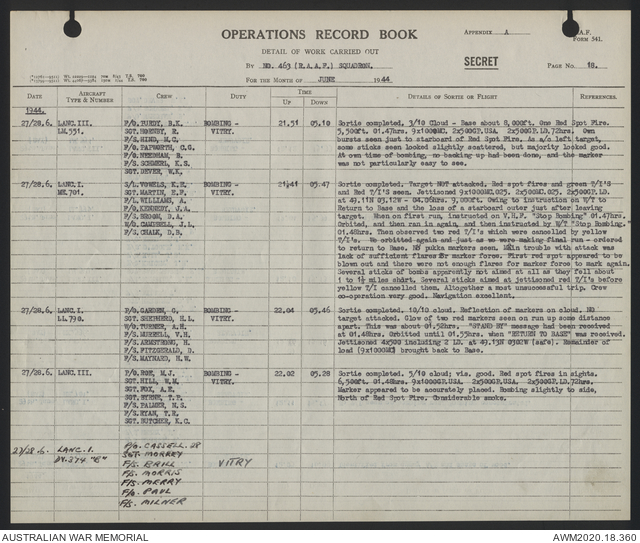 OPERATIONS RECORD BOOK
APPENDIX A
FORM 541.
DETAIL OF WORK CARRIED OUT
BY NO. 463 (R.A.A.F.) SQUADRON.
SECRET
PAGE NO. 18.
FOR THE MONTH OF JUNE 1944
DATE AIRCRAFT TYPE & NUMBER CREW DUTY TIME UP DOWN DETAILS OF SORTIE OR FLIGHT REFERENCES.
1944.
27/28.6. LANC.III. LM.551. BOMBING - VITRY. 21.51 05.10
F/O. PURDY, B.K.
SGT. HORNBY, R.
F/S. HIND, M.C.
F/O. PAPWORTH, C.G.
F/O. NEEDHAM, B.
F/S. SCHMERL, K.S.
SGT. DEVER, W.K.
Sortie completed. 3/10 Cloud - Base about 8,000ft. One Red Spot Fire.
5,500ft. 01.47hrs. 9x1000MC. 2x500GP.USA. 2x500GP.LD.72hrs. Own
bursts seen just to starboard of Red Spot Fire. As a/c left target,
some sticks seen looked slightly scattered, but majority looked good.
At own time of bombing, no backing up had been done, and the marker
was not particularly easy to see.
27/28.6. LANC.I. BOMBING - VITRY. 21.41 05.47
S/L. VOWELS, K.E.
SGT. MARTIN, E.F.
F/L. WILLIAMS, A.
F/O. KENNEDY, J.A.
F/S. BROOM, D.A.
W/O. CAMPBELL, J.L.
F/S. CHALK, D.B.
Sortie completed. Target NOT attacked. Red spot fires and green T/I'S
and Red T/I'S seen. Jettisoned 9x1000MC.025. 2x500MC.025. 2x500GP.LD.
at 49.11N 03.12W - 04.06hrs. 9,000ft. Owing to instruction on W/T to
Return to Base and the loss of a starboard outer just after leaving
target. When on first run, instructed on V.H.F. "Stop Bombing" 01.47hrs.
Orbited, and then ran in again, and then instructed by W/T "Stop Bombing.
01.48hrs. Then observed two red T/I's which were cancelled by yellow
T/I's. We orbitted again and just as we were making final run - ordered
to return to Base. NO pukka markers seen. Main trouble with attack was
lack of sufficient flares for marker force. First red spot appeared to be
blown out and there were not enough flares for marker force to mark again.
Several sticks of bombs apparently not aimed at all as they fell about
1 to 1½ miles short. Several sticks aimed at jettisoned red T/I's before
yellow T/I cancelled them. Altogether a most unsuccessful trip. Crew
co-operation very good. Navigation excellent.
27/28.6. LANC.I. LL.790. BOMBING - VITRY. 22.04 05.46
SGT. SHEPHERD, H.L.
W/O. TURNER, A.H.
F/S. MORRELL, V.H.
F/S. ARMSTRONG, H.
F/S. FITZGERALD, D.
F/S. MAYNARD, H.W.
Sortie completed. 10/10 cloud. Reflection of markers on cloud. NO
target attacked. Glow of two red markers seen on run up some distance
apart. This was about 01.52hrs. "STAND BY" message had been received
at 01.48hrs. Orbitted until 01.55hrs. when "RETURN TO BASE" was received.
Jettisoned 4x500 including 2 LD. at 49.13N 0302W (safe). Remainder of
load (9x1000MC) brought back to Base.
27/28.6. LANC.III. BOMBING - VITRY. 22.02 05.28
P/O. ROE, M.J.
SGT. HILL, W.M.
SGT. FOX, A.E.
SGT. BYRNE, T.P.
F/S. PALMER, N.S.
F/S. RYAN, T.R.
SGT. BUTCHER, K.C.
Sortie completed. 5/10 cloud; vis. good. Red spot fires in sights.
6,500ft. 01.48hrs. 9x1000GP.USA. 2x500GP.USA. 2x500GP.LD.72hrs.
Marker appeared to be accurately placed. Bombing slightly to side,
North of Red Spot Fire. Considerable smoke.
27/28.6. LANC. 1. "E" VITRY
P/O. CASSELL. JR
SGT. MORREY
F/S. BRILL
F/S. MORRIS
F/S. MERRY
F/O. PAUL
F/S. MILNER
AUSTRALIAN WAR MEMORIAL
AWM2020.18.360